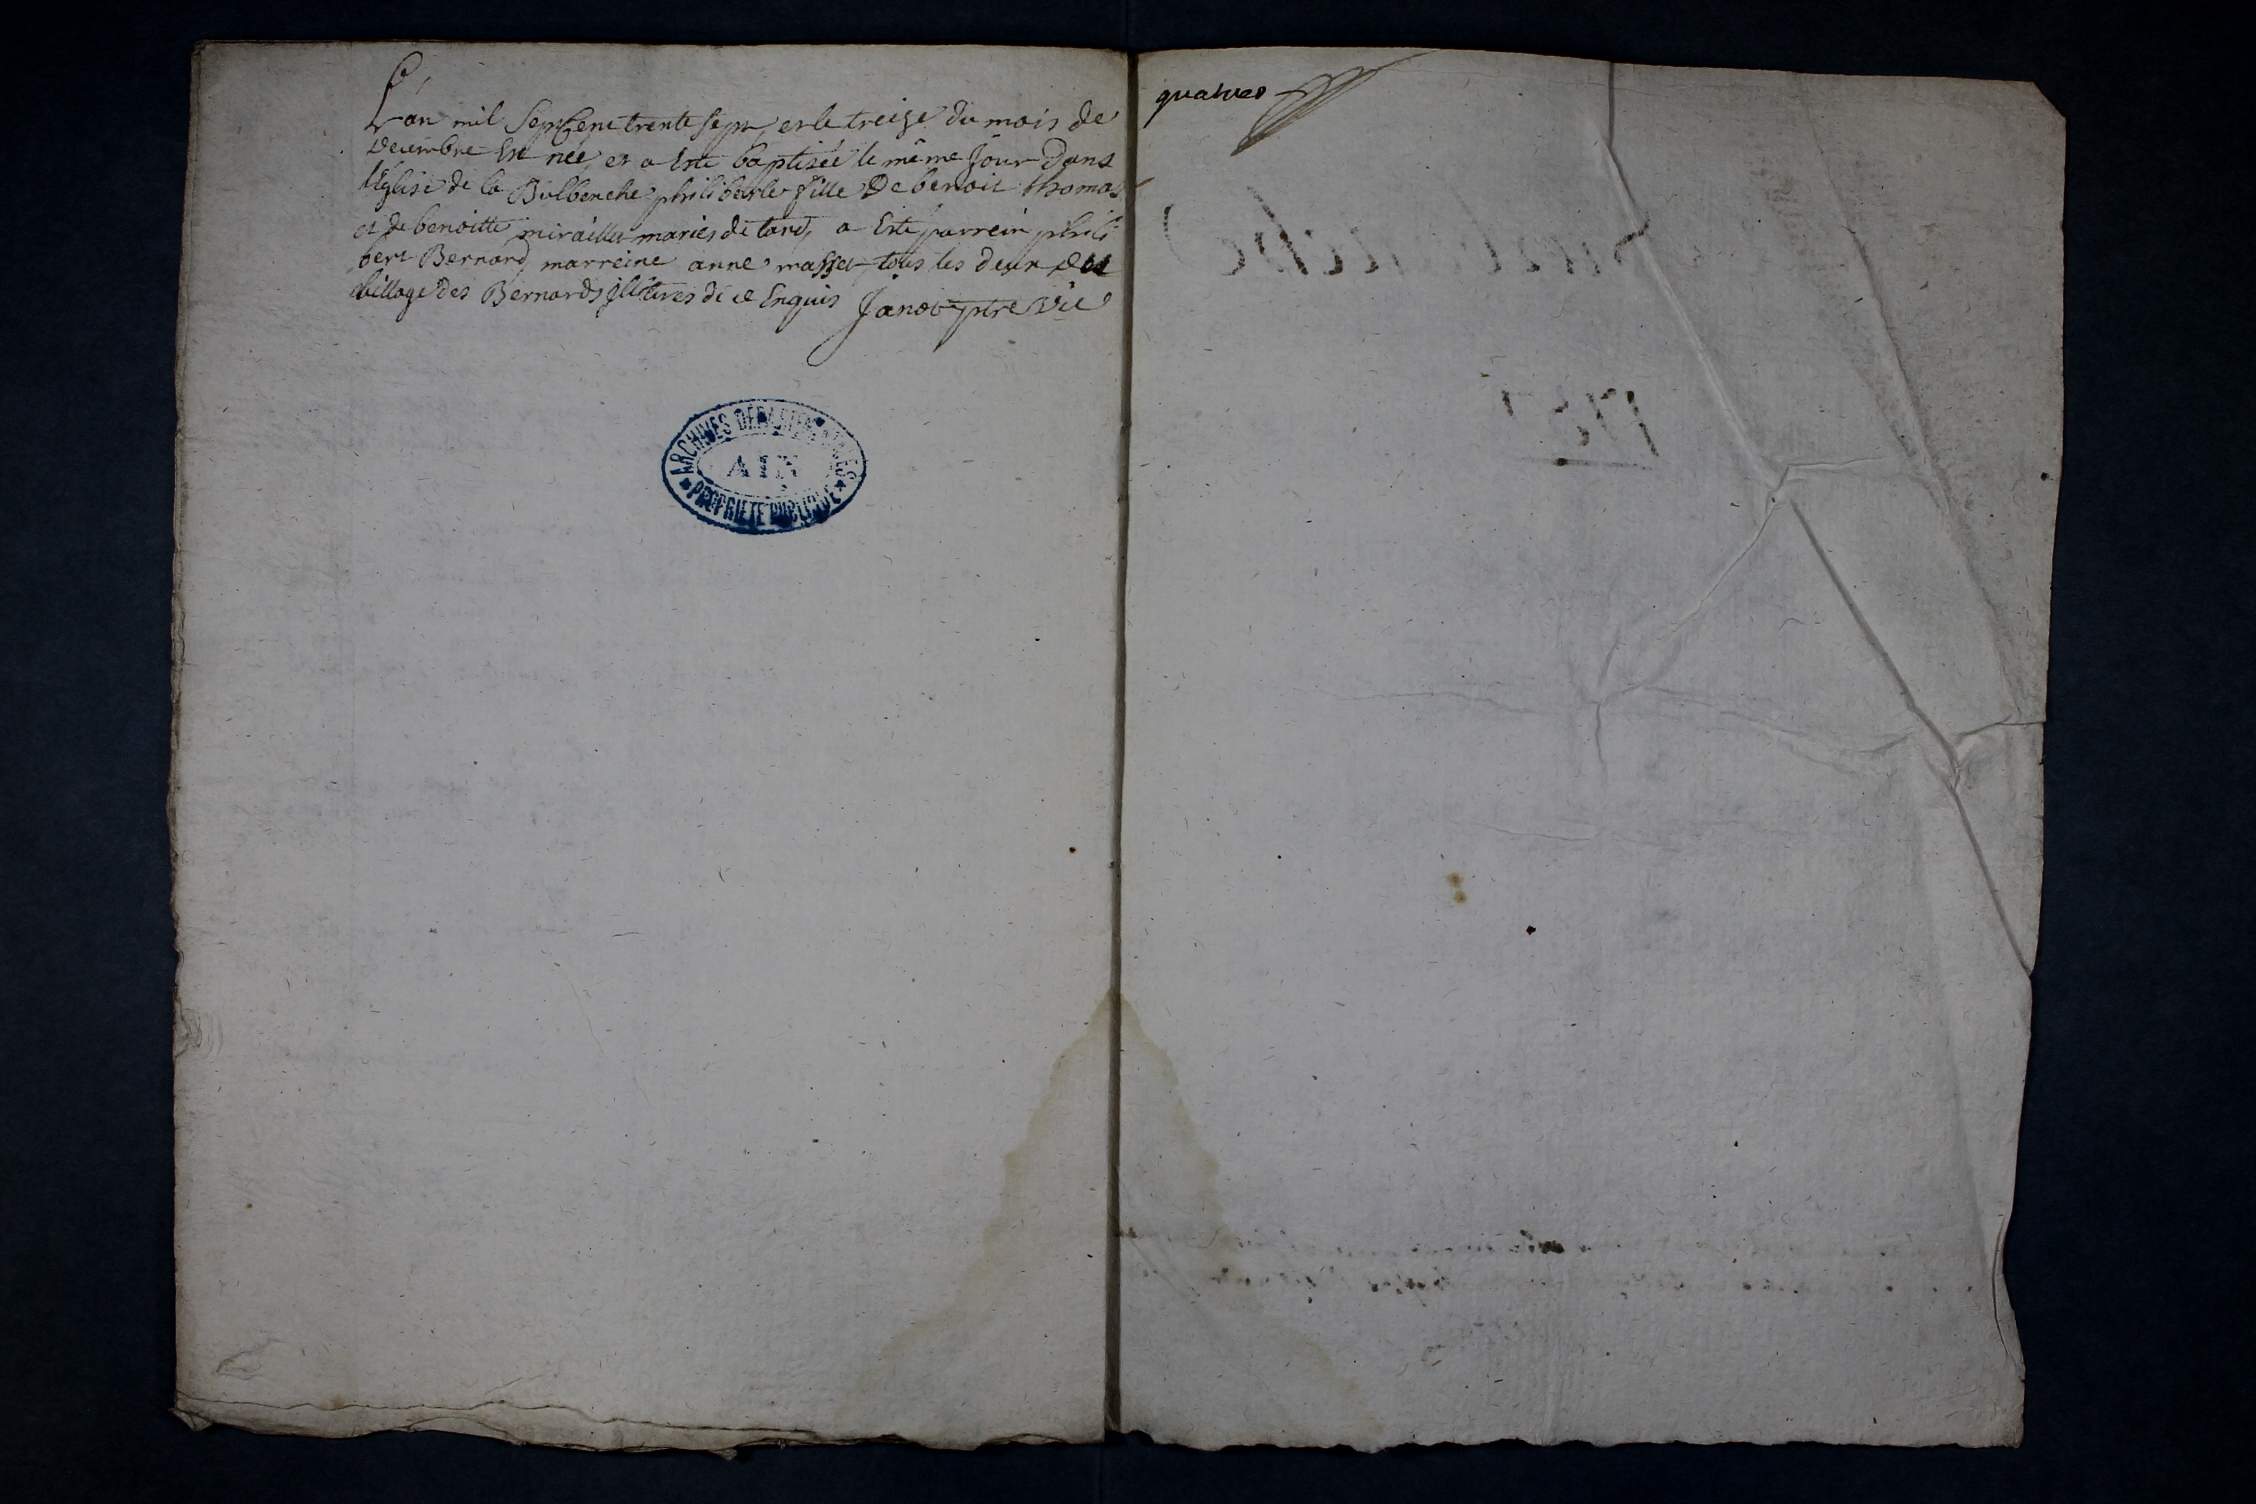 L'an mil Septcent trente sept, et le treize du mois de
Decembre Est née, et a Esté baptisée le même Jour Dans
l'Eglise de la Bulbenche philiberte fille De benoit thomas
et de benoitte miraillet mariés de tard, a Esté parrein phili
bert Bernard, marreine anne masset tous les deux du
village des Bernards illitires de ce Enquis Janot ptre Vic
quatres
ARCHIVES DÉPARTEMENTALES
AIN
PROPRIETE PUBLIQUE